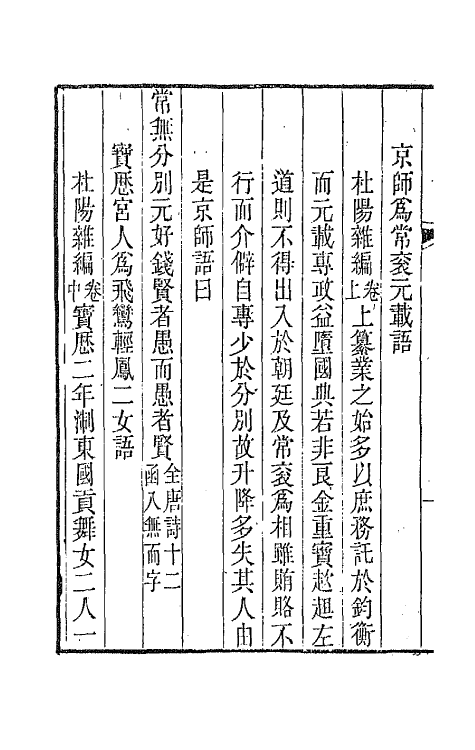 京師爲常袞元載語
杜陽雜編卷上上纂業之始多以庶務託於鈞衡
而元載專政益墮國典若非良金重寶趑趄左
道則不得出入於朝廷及常袞爲相雖賄賂不
行而介僻自專少於分別故升降多失其人由
是京師語曰
常無分別元好錢賢者愚而愚者賢全唐詩十二函八無而字
寶厯宮人爲飛鸞輕鳳二女語
杜陽雜編卷中寶厯二年淛東國貢舞女二人一